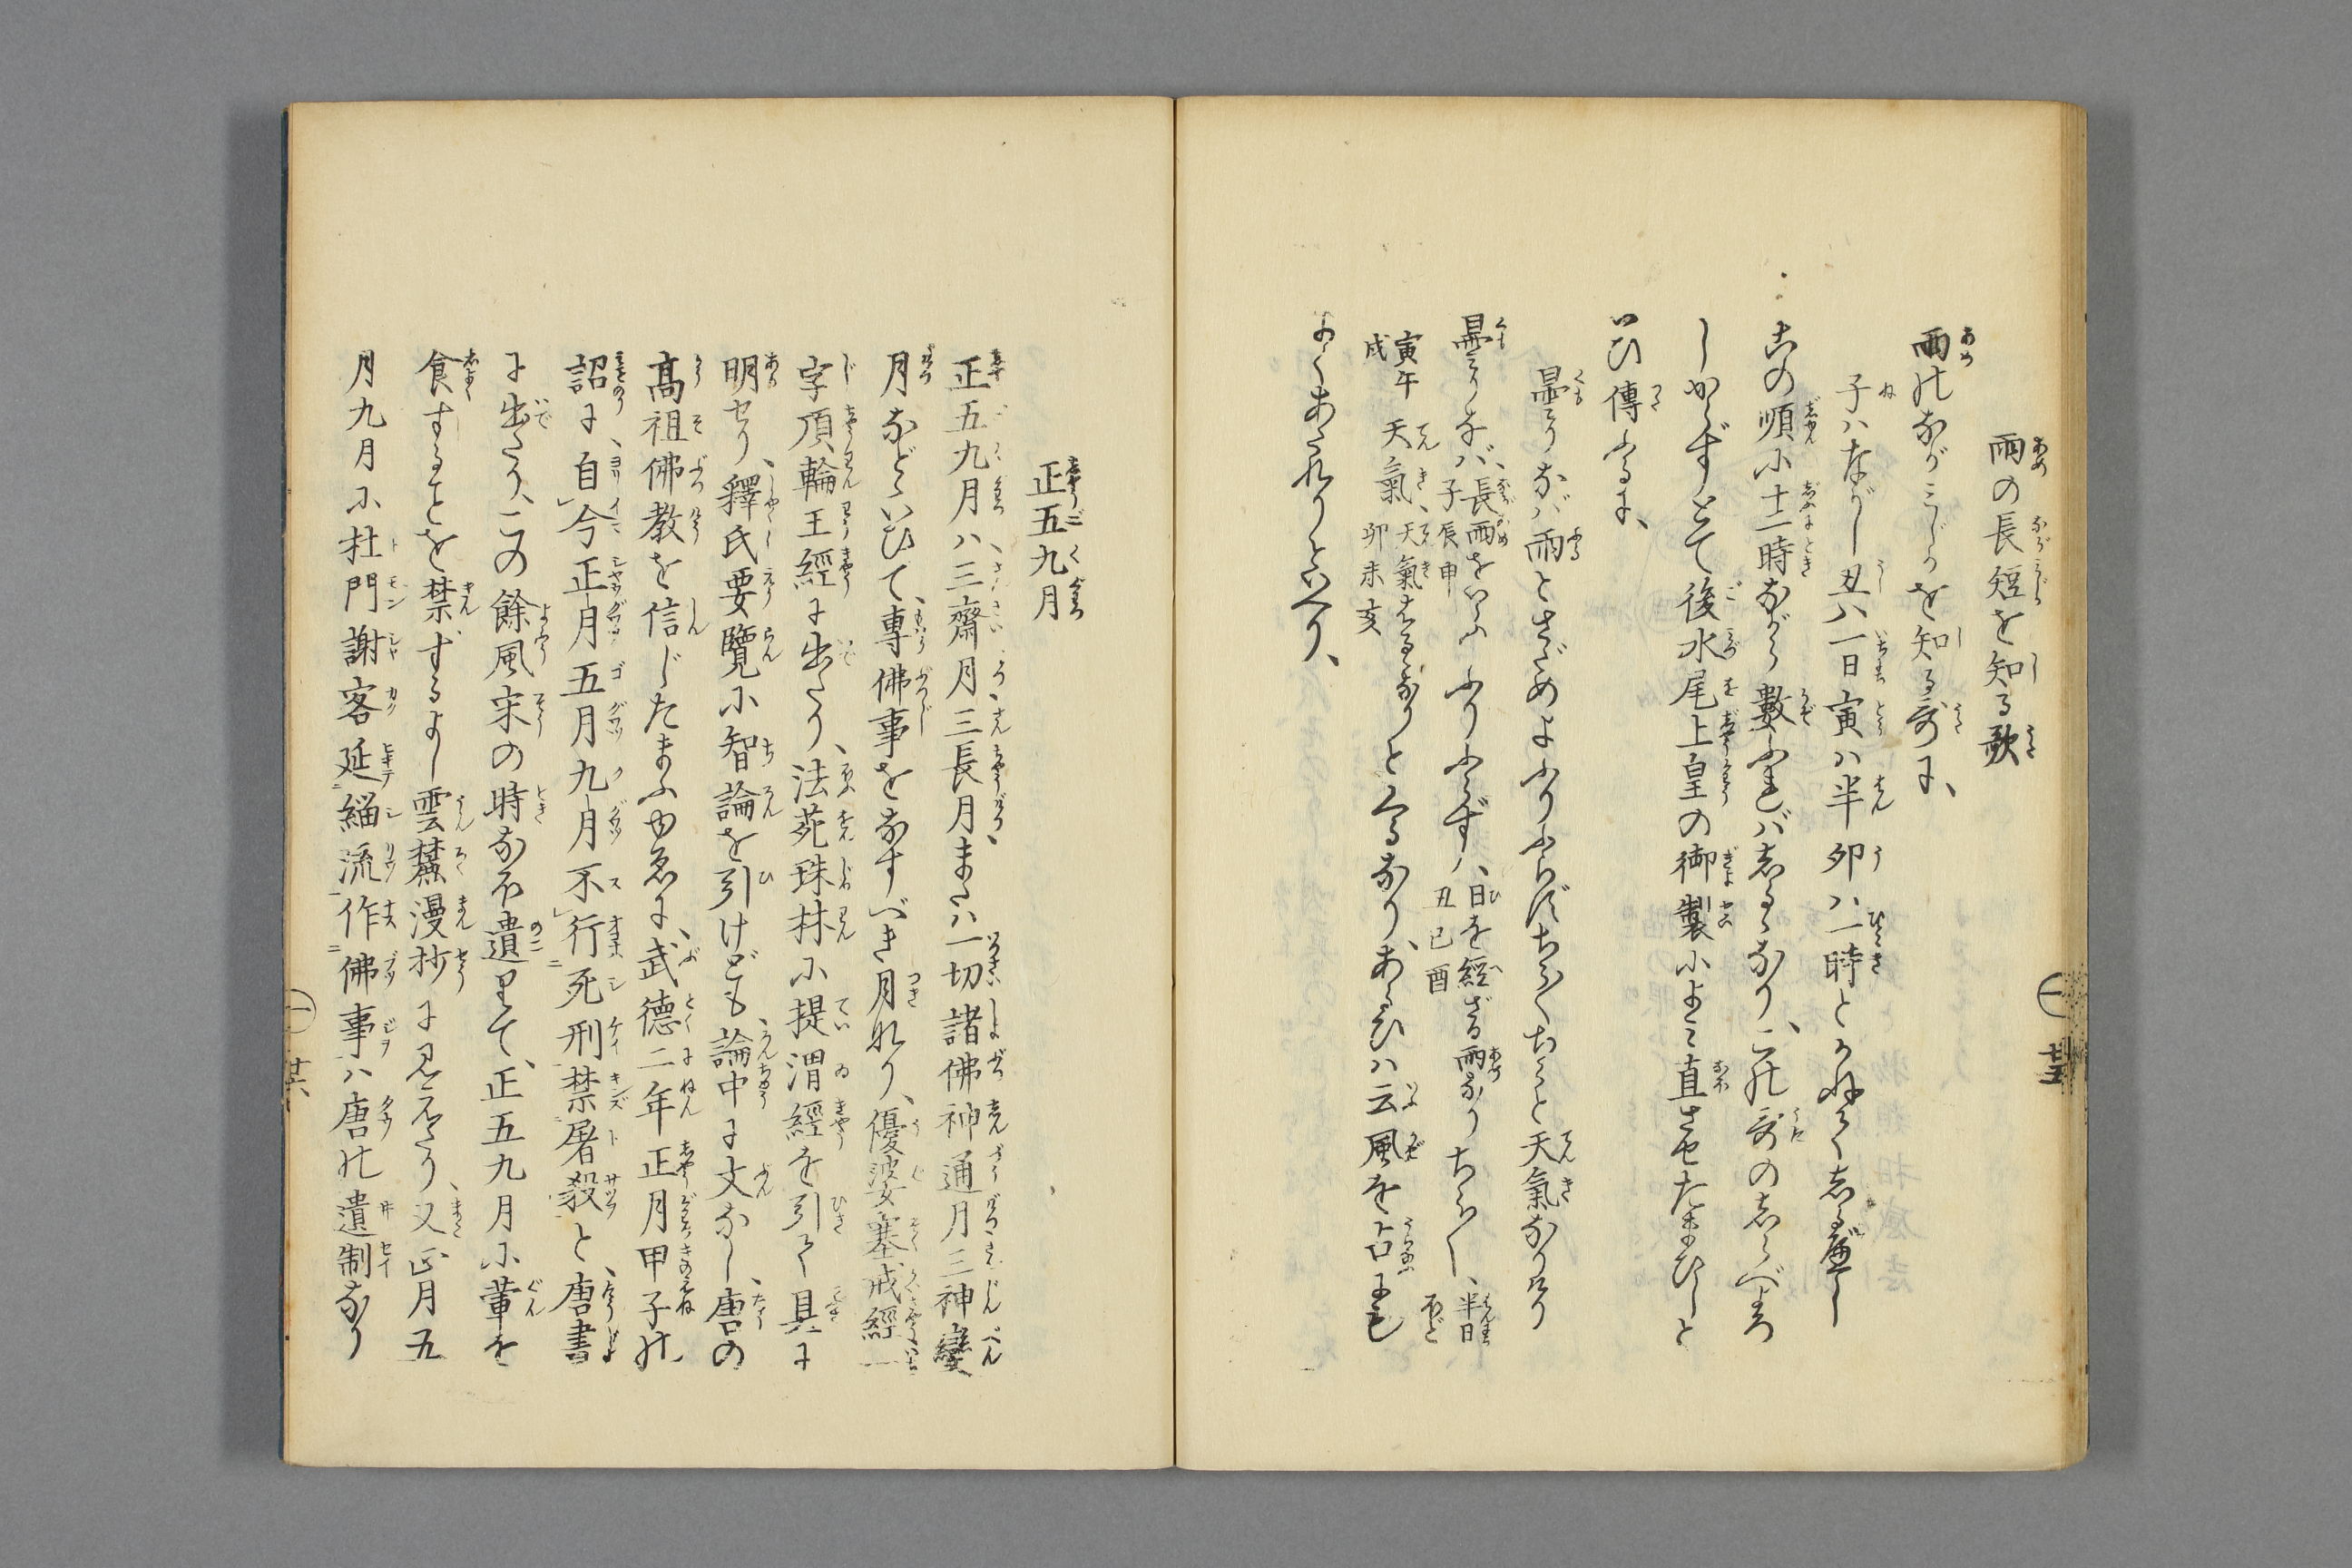 雨の長短を知る歌
雨のながみじかを知る哥に、
子ハながし丑ハ一日寅ハ半卯ハ一時とかねてしるべし
右の順に十二時ながら數ふればしるゝなり、この哥のしらべよろ
しからずとて後水尾上皇の御製によみ直させたまひしと
いひ傳ふるに、
曇りなバ雨とさだめよふりふらずちらちらと天氣なりけり
曇りなバ、長雨をいふ 子辰申 ふりふらずハ、日を經ざる雨なり 丑巳酉 ちらちら、半日ほど
寅午戌 天氣、天氣になるなり 卯未亥 と
なり、あるひハ云風を占にも
よくあたれりといへり、
一 廿五
正五九月
正五九月ハ、三齋月三長月、またハ一切諸佛神通月三神變
月などゝいひて、專佛事をなすべき月なり、優婆塞戒經一
字頂輪王經に出たり、法苑珠林に提謂經を引て具に
明せり、釋氏要覽に智論を引けども、論中に文なし、唐の
高祖佛教を信じたまふゆゑに、武德二年正月甲子の
詔に、自今正月五月九月不行死刑禁屠殺と、唐書
に出たり、この餘風宋の時なほ遺りて、正五九月に葷を
食することを禁ずるよし雲麓漫抄に見えたり、又正月五
月九月に杜門謝客延緇流作佛事ハ唐の遺制なり
一 廿六